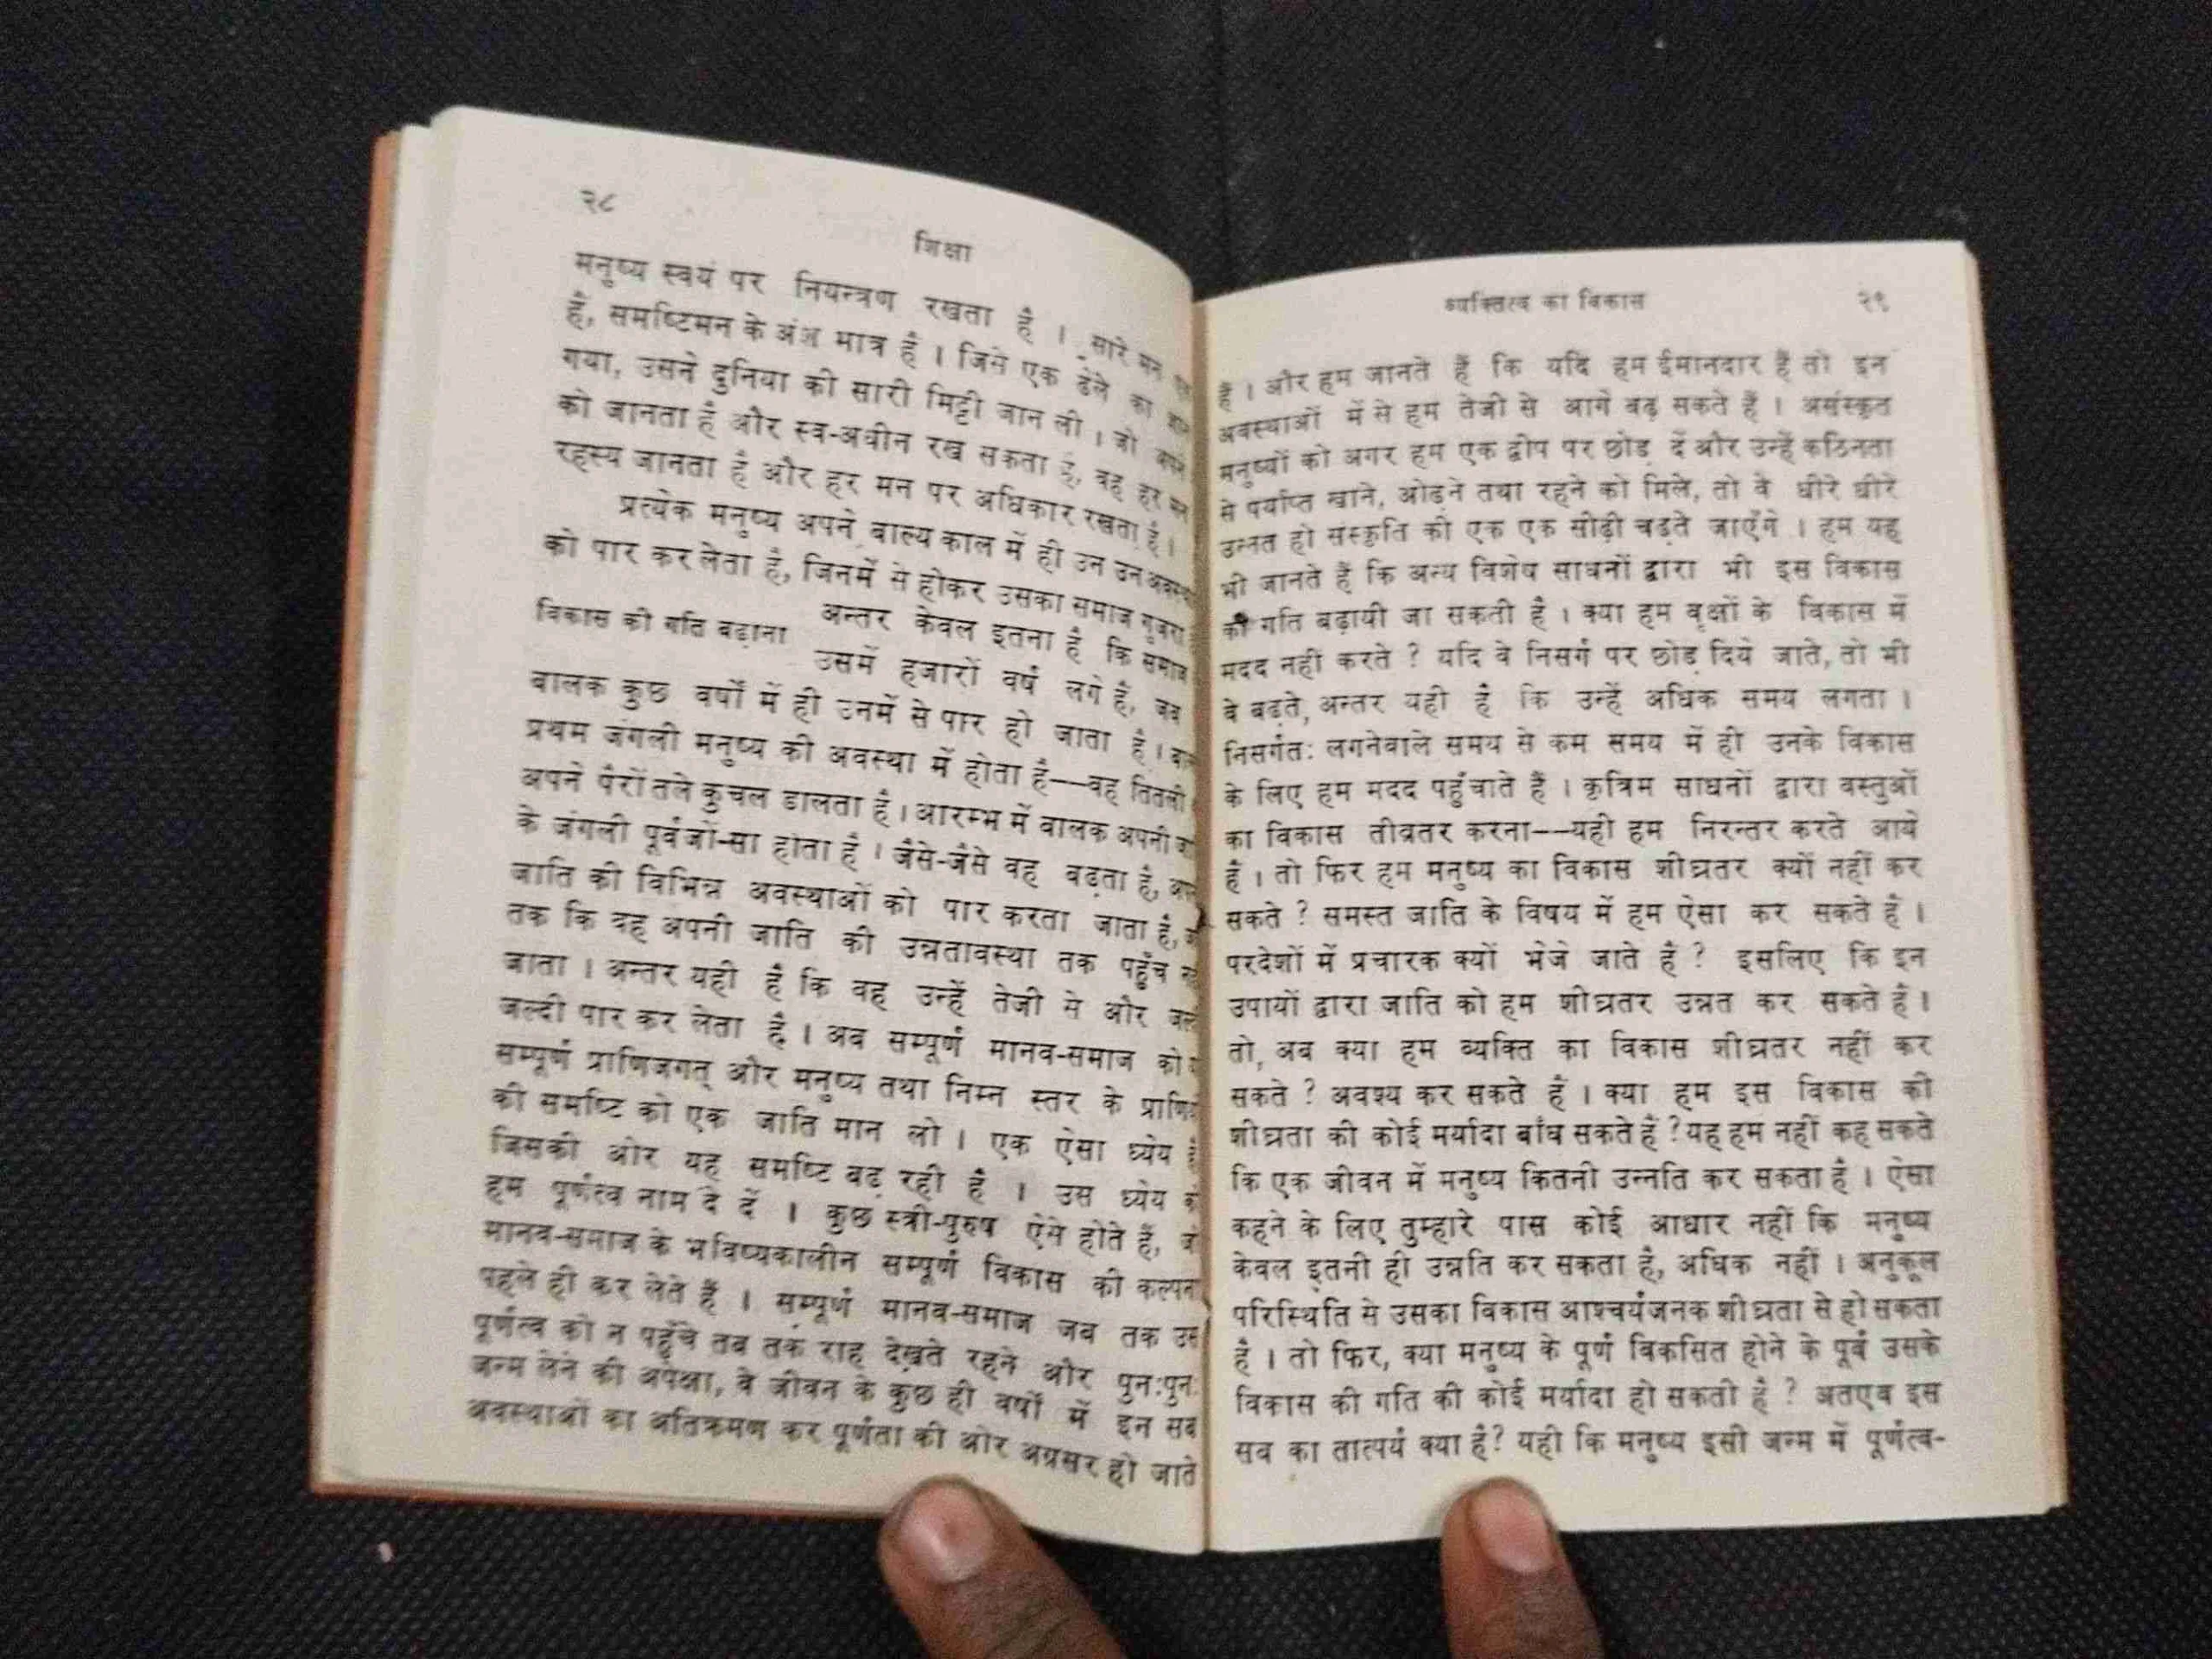 २८
शिक्षा
मनुष्य स्वयं पर नियन्त्रण रखता है । सारे मन
हैं, समष्टिमन के अंश मात्र हैं । जिसे एक ढेले का
गया, उसने दुनिया की सारी मिट्टी जान ली । जो
को जानता है और स्व-अधीन रख सकता है, वह हर मन
रहस्य जानता है और हर मन पर अधिकार रखता है ।
प्रत्येक मनुष्य अपने बाल्य काल में ही उन उन
को पार कर लेता है, जिनमें से होकर उसका समाज गुजरा
विकास की गति बढ़ाना
अन्तर केवल इतना है कि समाज
उसमें हजारों वर्ष लगे हैं, जब
बालक कुछ वर्षों में ही उनमें से पार हो जाता है ।
प्रथम जंगली मनुष्य की अवस्था में होता है——वह तितली
अपने पैरों तले कुचल डालता है । आरम्भ में बालक अपनी
के जंगली पूर्वजों-सा होता है । जैसे-जैसे वह बढ़ता है,
जाति की विभिन्न अवस्थाओं को पार करता जाता है,
तक कि वह अपनी जाति की उन्नतावस्था तक पहुँच
जाता । अन्तर यही है कि वह उन्हें तेजी से और
जल्दी पार कर लेता है । अब सम्पूर्ण मानव-समाज को
सम्पूर्ण प्राणिजगत् और मनुष्य तथा निम्न स्तर के
की समष्टि को एक जाति मान लो । एक ऐसा ध्येय
जिसकी ओर यह समष्टि बढ़ रही है । उस ध्येय
हम पूर्णत्व नाम दे दें । कुछ स्त्री-पुरुष ऐसे होते हैं,
मानव-समाज के भविष्यकालीन सम्पूर्ण विकास की कल्पना
पहले ही कर लेते हैं । सम्पूर्ण मानव-समाज जब तक उस
पूर्णत्व को न पहुँचे तब तक राह देखते रहने और पुनःपुनः
जन्म लेने की अपेक्षा, वे जीवन के कुछ ही वर्षों में इन सब
अवस्थाओं का अतिक्रमण कर पूर्णता की ओर अग्रसर हो जाते
व्यक्तित्व का विकास २९
हैं । और हम जानते हैं कि यदि हम ईमानदार हैं तो इन
अवस्थाओं में से हम तेजी से आगे बढ़ सकते हैं । असंस्कृत
मनुष्यों को अगर हम एक द्वीप पर छोड़ दें और उन्हें कठिनता
से पर्याप्त खाने, ओढ़ने तथा रहने को मिले, तो वे धीरे धीरे
उन्नत हो संस्कृति की एक एक सीढ़ी चढ़ते जाएँगे । हम यह
भी जानते हैं कि अन्य विशेष साधनों द्वारा भी इस विकास
की गति बढ़ायी जा सकती है । क्या हम वृक्षों के विकास में
मदद नहीं करते ? यदि वे निसर्ग पर छोड़ दिये जाते, तो भी
वे बढ़ते, अन्तर यही है कि उन्हें अधिक समय लगता ।
निसर्गतः लगनेवाले समय से कम समय में ही उनके विकास
के लिए हम मदद पहुँचाते हैं । कृत्रिम साधनों द्वारा वस्तुओं
का विकास तीव्रतर करना——यही हम निरन्तर करते आये
हैं । तो फिर हम मनुष्य का विकास शीघ्रतर क्यों नहीं कर
सकते ? समस्त जाति के विषय में हम ऐसा कर सकते हैं ।
परदेशों में प्रचारक क्यों भेजे जाते हैं ? इसलिए कि इन
उपायों द्वारा जाति को हम शीघ्रतर उन्नत कर सकते हैं ।
तो, अब क्या हम व्यक्ति का विकास शीघ्रतर नहीं कर
सकते ? अवश्य कर सकते हैं । क्या हम इस विकास की
शीघ्रता की कोई मर्यादा बाँध सकते हैं ? यह हम नहीं कह सकते
कि एक जीवन में मनुष्य कितनी उन्नति कर सकता है । ऐसा
कहने के लिए तुम्हारे पास कोई आधार नहीं कि मनुष्य
केवल इतनी ही उन्नति कर सकता है, अधिक नहीं । अनुकूल
परिस्थिति से उसका विकास आश्चर्यजनक शीघ्रता से हो सकता
है । तो फिर, क्या मनुष्य के पूर्ण विकसित होने के पूर्व उसके
विकास की गति की कोई मर्यादा हो सकती है ? अतएव इस
सब का तात्पर्य क्या है? यही कि मनुष्य इसी जन्म में पूर्णत्व-